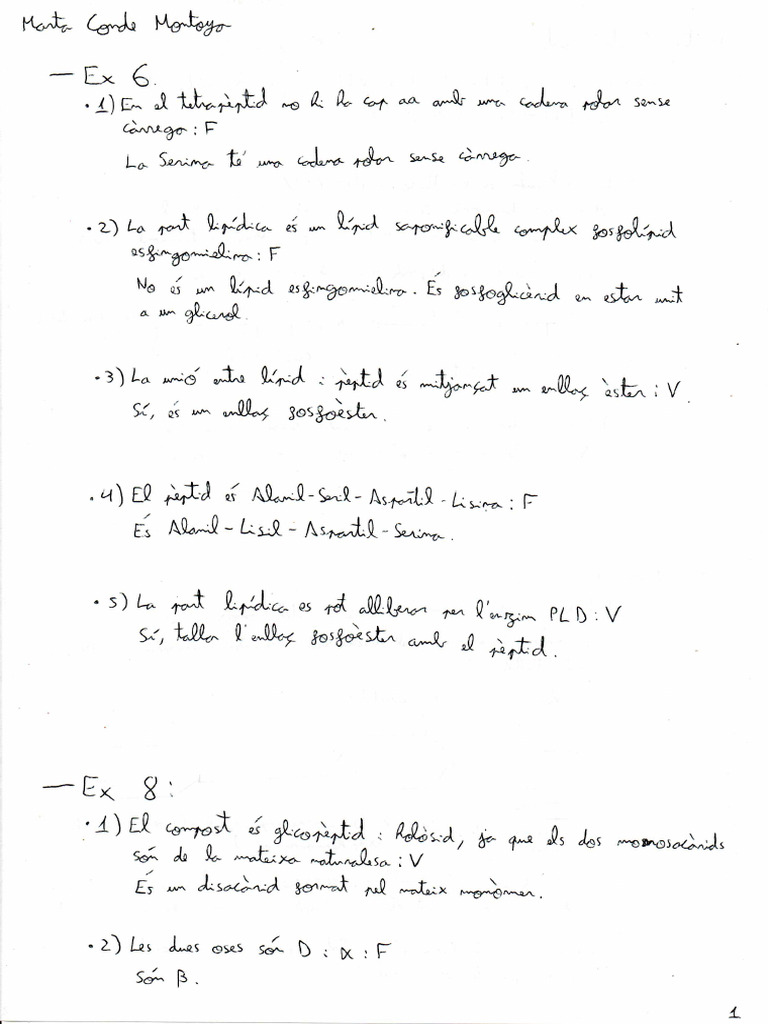 Marta Conde Montoya
— Ex 6.
• 1) En el tetrapèptid no hi ha cap aa amb una cadena polar sense
càrrega : F
La Serina té una cadena polar sense càrrega.
• 2) La part lipídica és un lípid saponificable complex fosfolípid
esfingomielina : F
No és un lípid esfingomielina. És fosfoglicèrid en estar unit
a un glicerol.
• 3) La unió entre lípid i pèptid és mitjançat un enllaç èster : V.
Sí, és un enllaç fosfoèster.
• 4) El pèptid és Alanil-Seril-Aspartil-Lisina : F
És Alanil-Lisil-Aspartil-Serina.
• 5) La part lipídica es pot alliberar per l'enzim PLD : V
Sí, talla l'enllaç fosfoèster amb el pèptid.
— Ex 8 :
• 1) El compost és glicopèptid i holòsid, ja que els dos monosacàrids
són de la mateixa naturalesa : V
És un disacàrid format pel mateix monòmer.
• 2) Les dues oses són D i α : F
Són β.
1